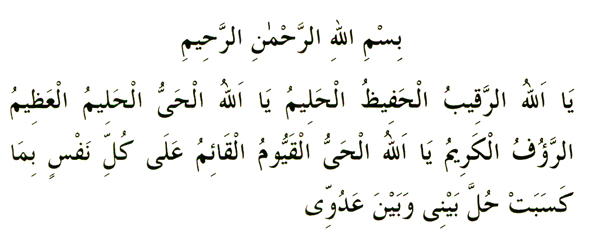 بِسْمِ اللهِ الرَّحْمٰنِ الرَّحِيمِ
يَا اَللهُ الرَّقِيبُ الْحَفِيظُ الْحَلِيمُ يَا اَللهُ الْحَىُّ الْحَلِيمُ الْعَظِيمُ
الرَّؤُفُ الْكَرِيمُ يَا اَللهُ الْحَىُّ الْقَيُّومُ الْقَائِمُ عَلَى كُلِّ نَفْسٍ بِمَا
كَسَبَتْ حُلَّ بَيْنِى وَبَيْنَ عَدُوِّى